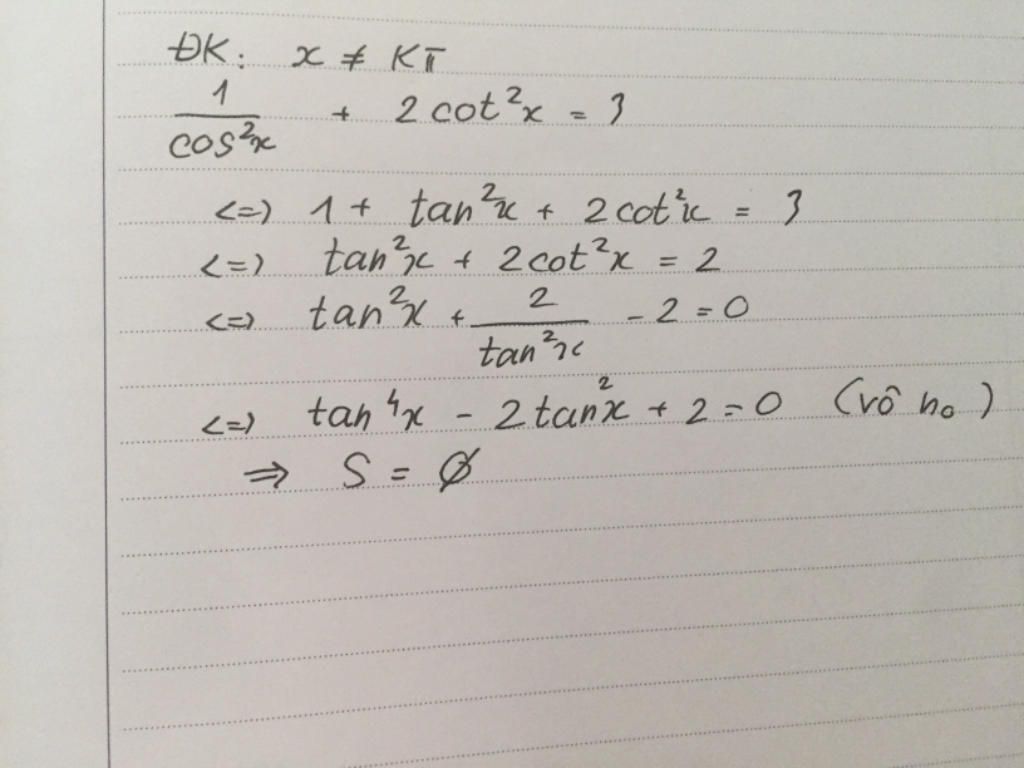 ĐK: x ≠ Kπ
1/cos²x + 2cot²x = 3
<=> 1 + tan²x + 2cot²x = 3
<=> tan²x + 2cot²x = 2
<=> tan²x + 2/tan²x - 2 = 0
<=> tan⁴x - 2tan²x + 2 = 0 (vô no)
=> S = Ø